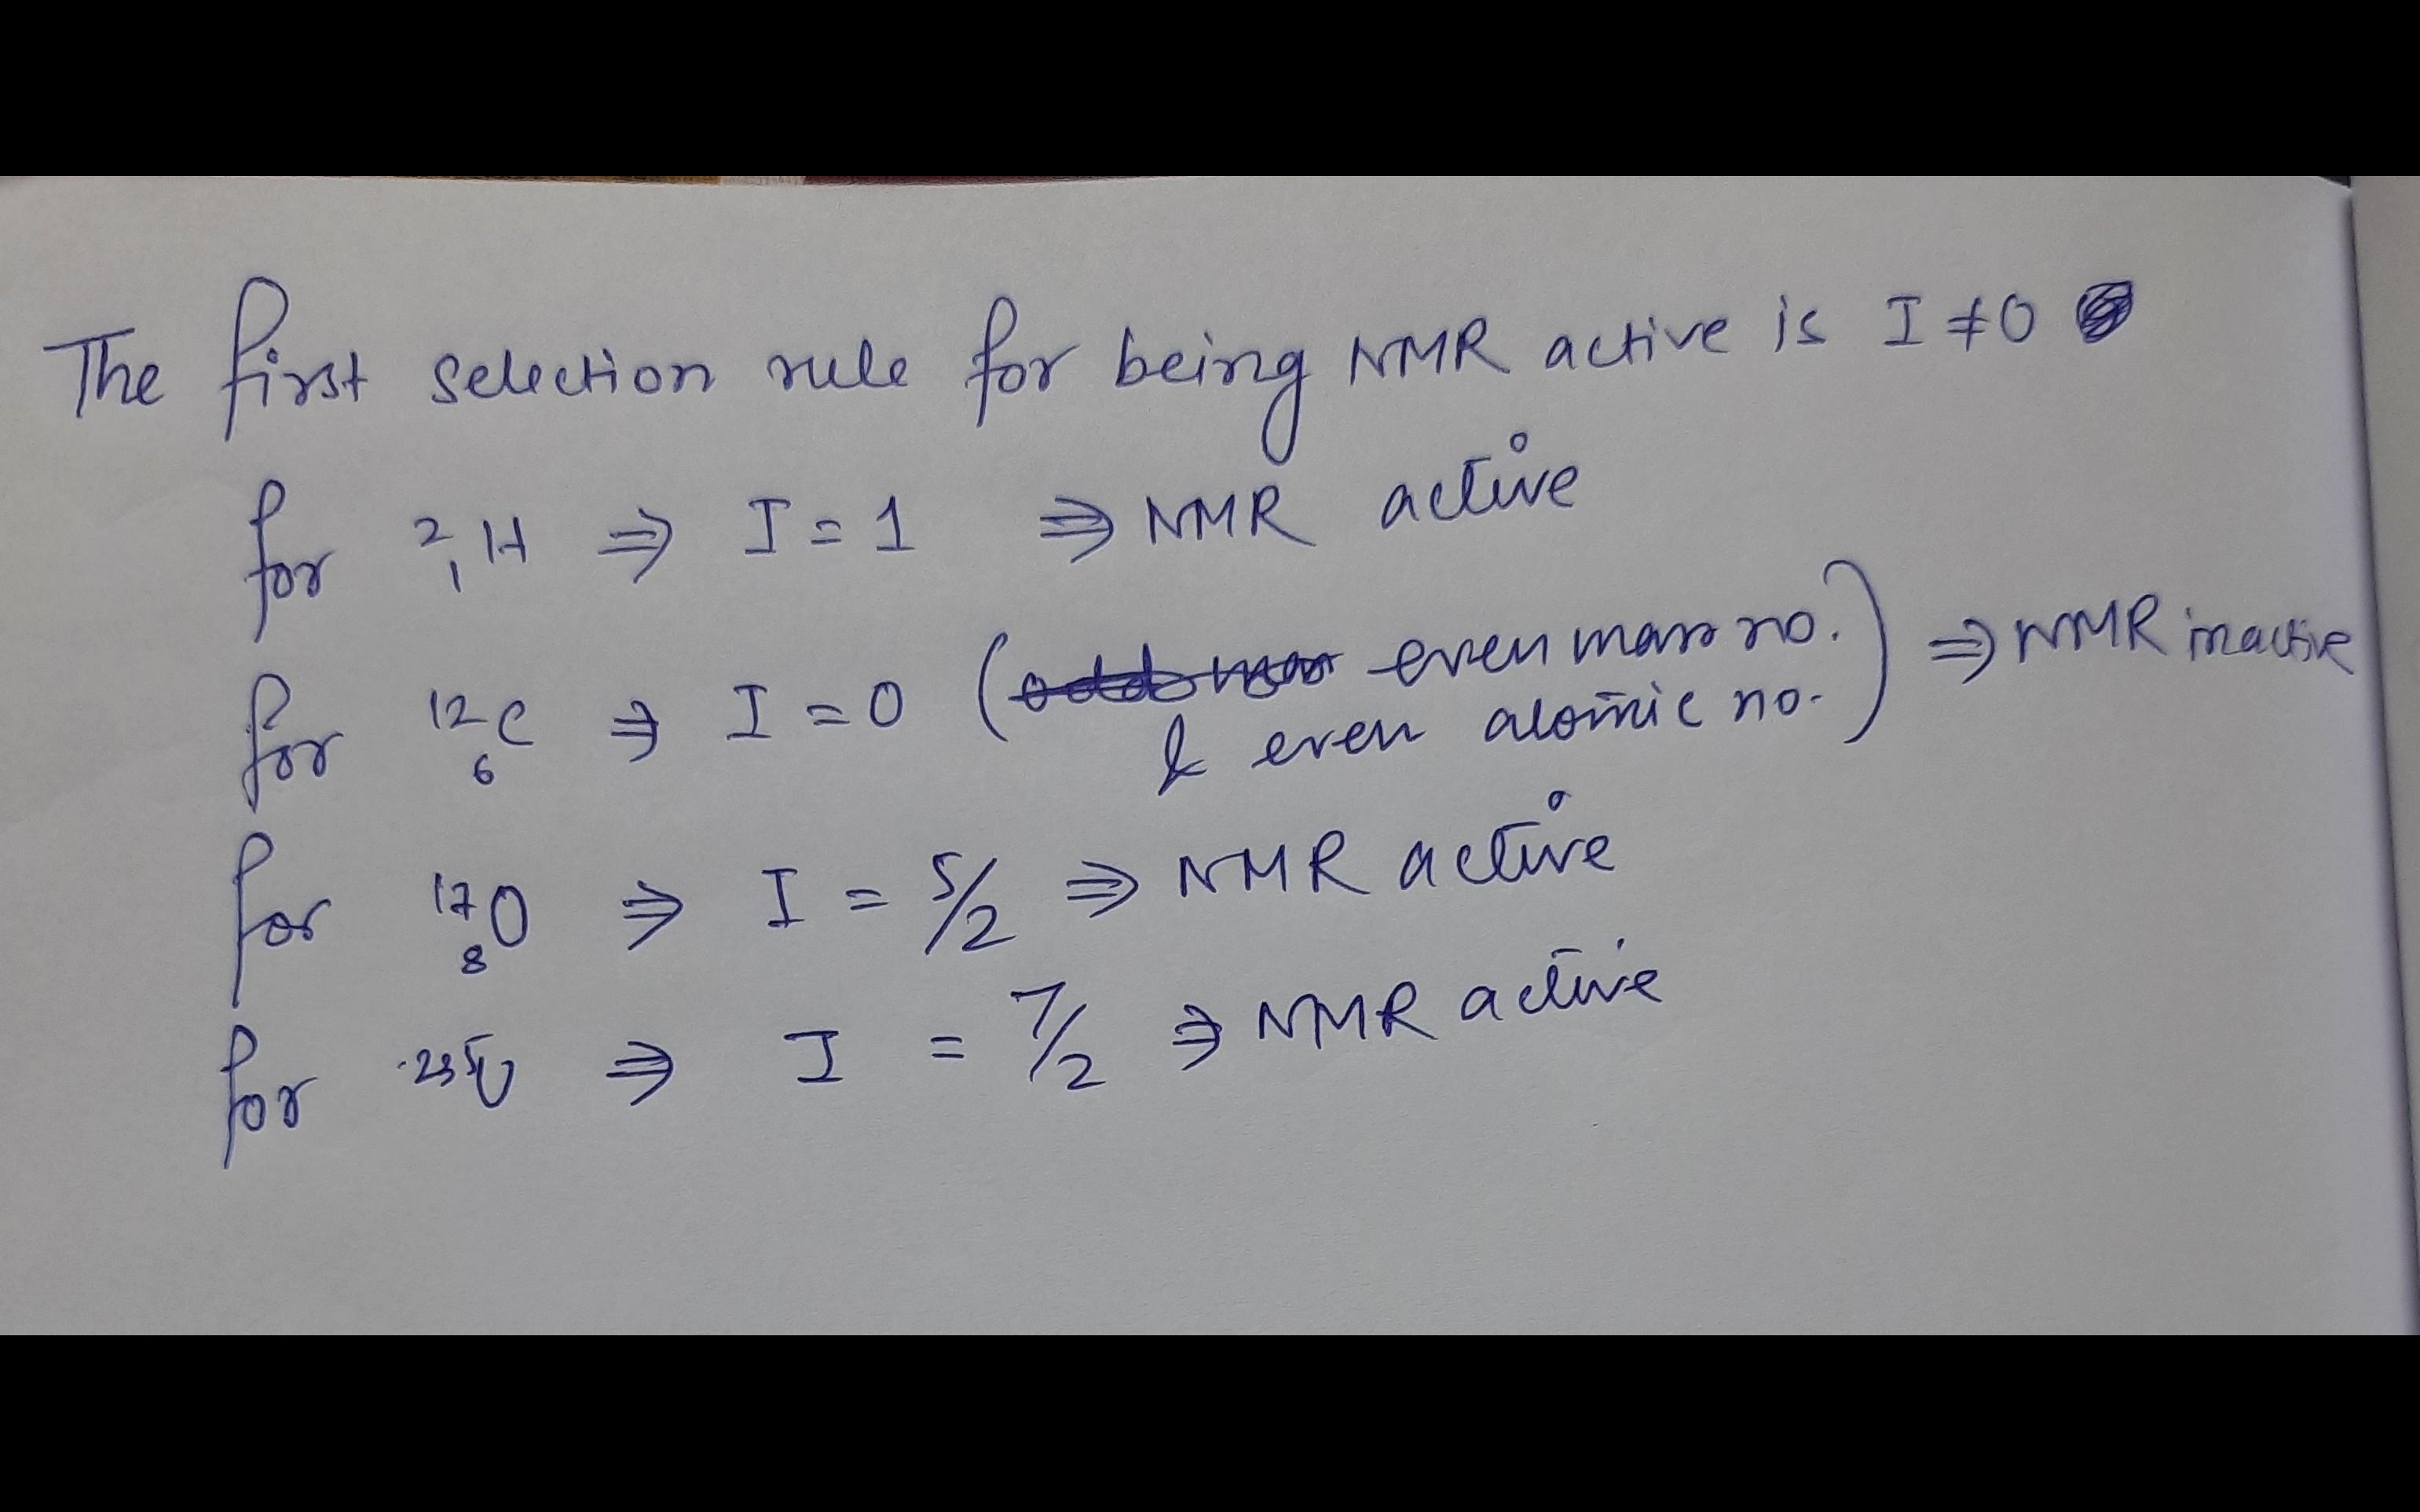 The first selection rule for being NMR active is I ≠ 0
for ²₁H ⇒ I = 1 ⇒ NMR active
for ¹²₆C ⇒ I = 0 (even mass no. & even atomic no.) ⇒ NMR inactive
for ¹⁷₈O ⇒ I = 5/2 ⇒ NMR active
for ²³⁵U ⇒ I = 7/2 ⇒ NMR active